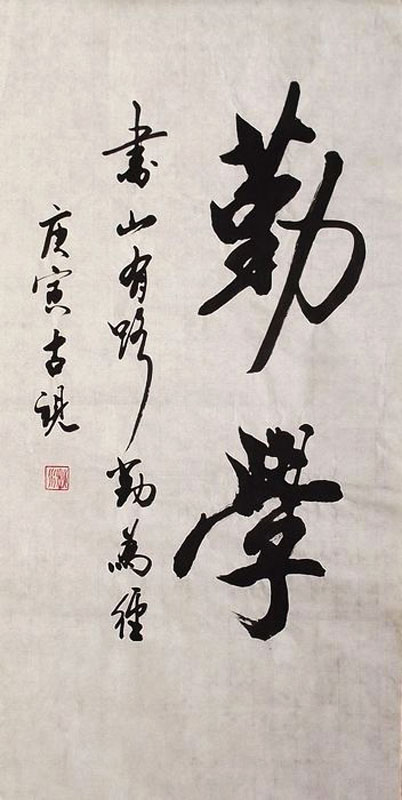 勤學
書山有路勤為徑
庚寅古硯